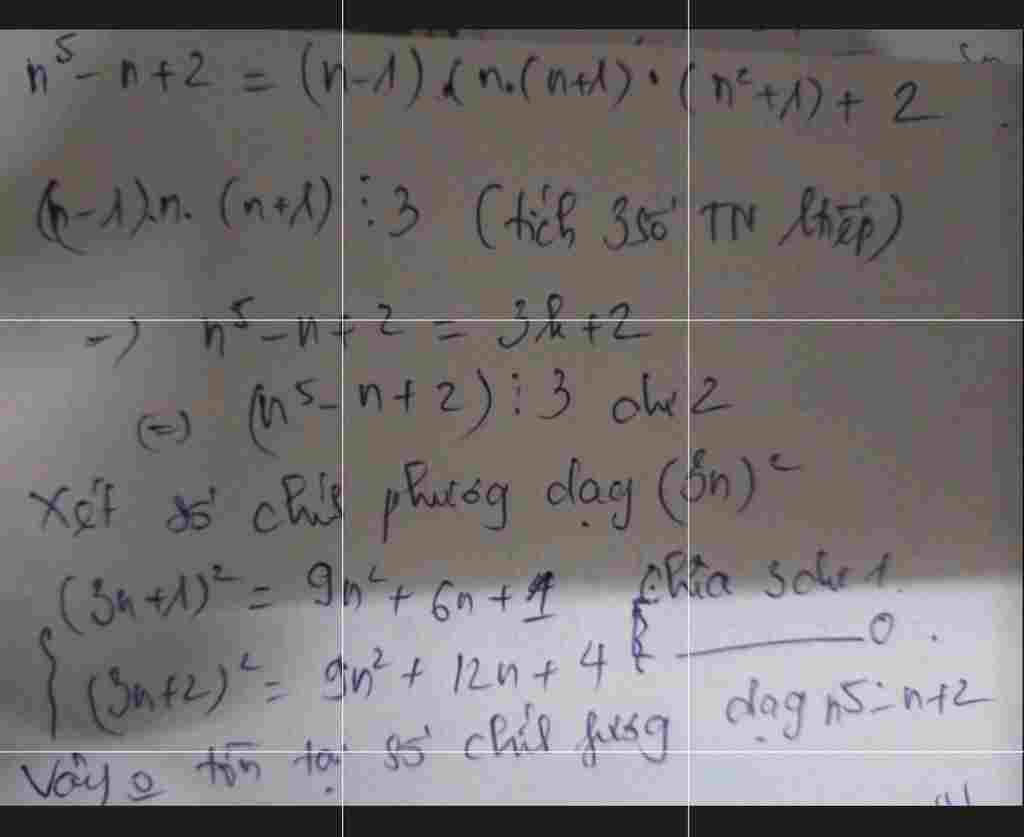 n⁵ - n + 2 = (n-1) ( n.(n+1) . (n²+1) + 2
(n-1).n. (n+1) ⋮ 3 (tích 3 số TN ltiếp)
=> n⁵ - n + 2 = 3k + 2
(=) (n⁵ - n + 2) ⋮ 3 dư 2
Xét số chíh phương dạg (3n)²
(3n+1)² = 9n² + 6n + 1 chia 3 dư 1.
(3n+2)² = 9n² + 12n + 4 ———— 0.
Vậy o tồn tại số chíh fươg dạg n5 - n+2